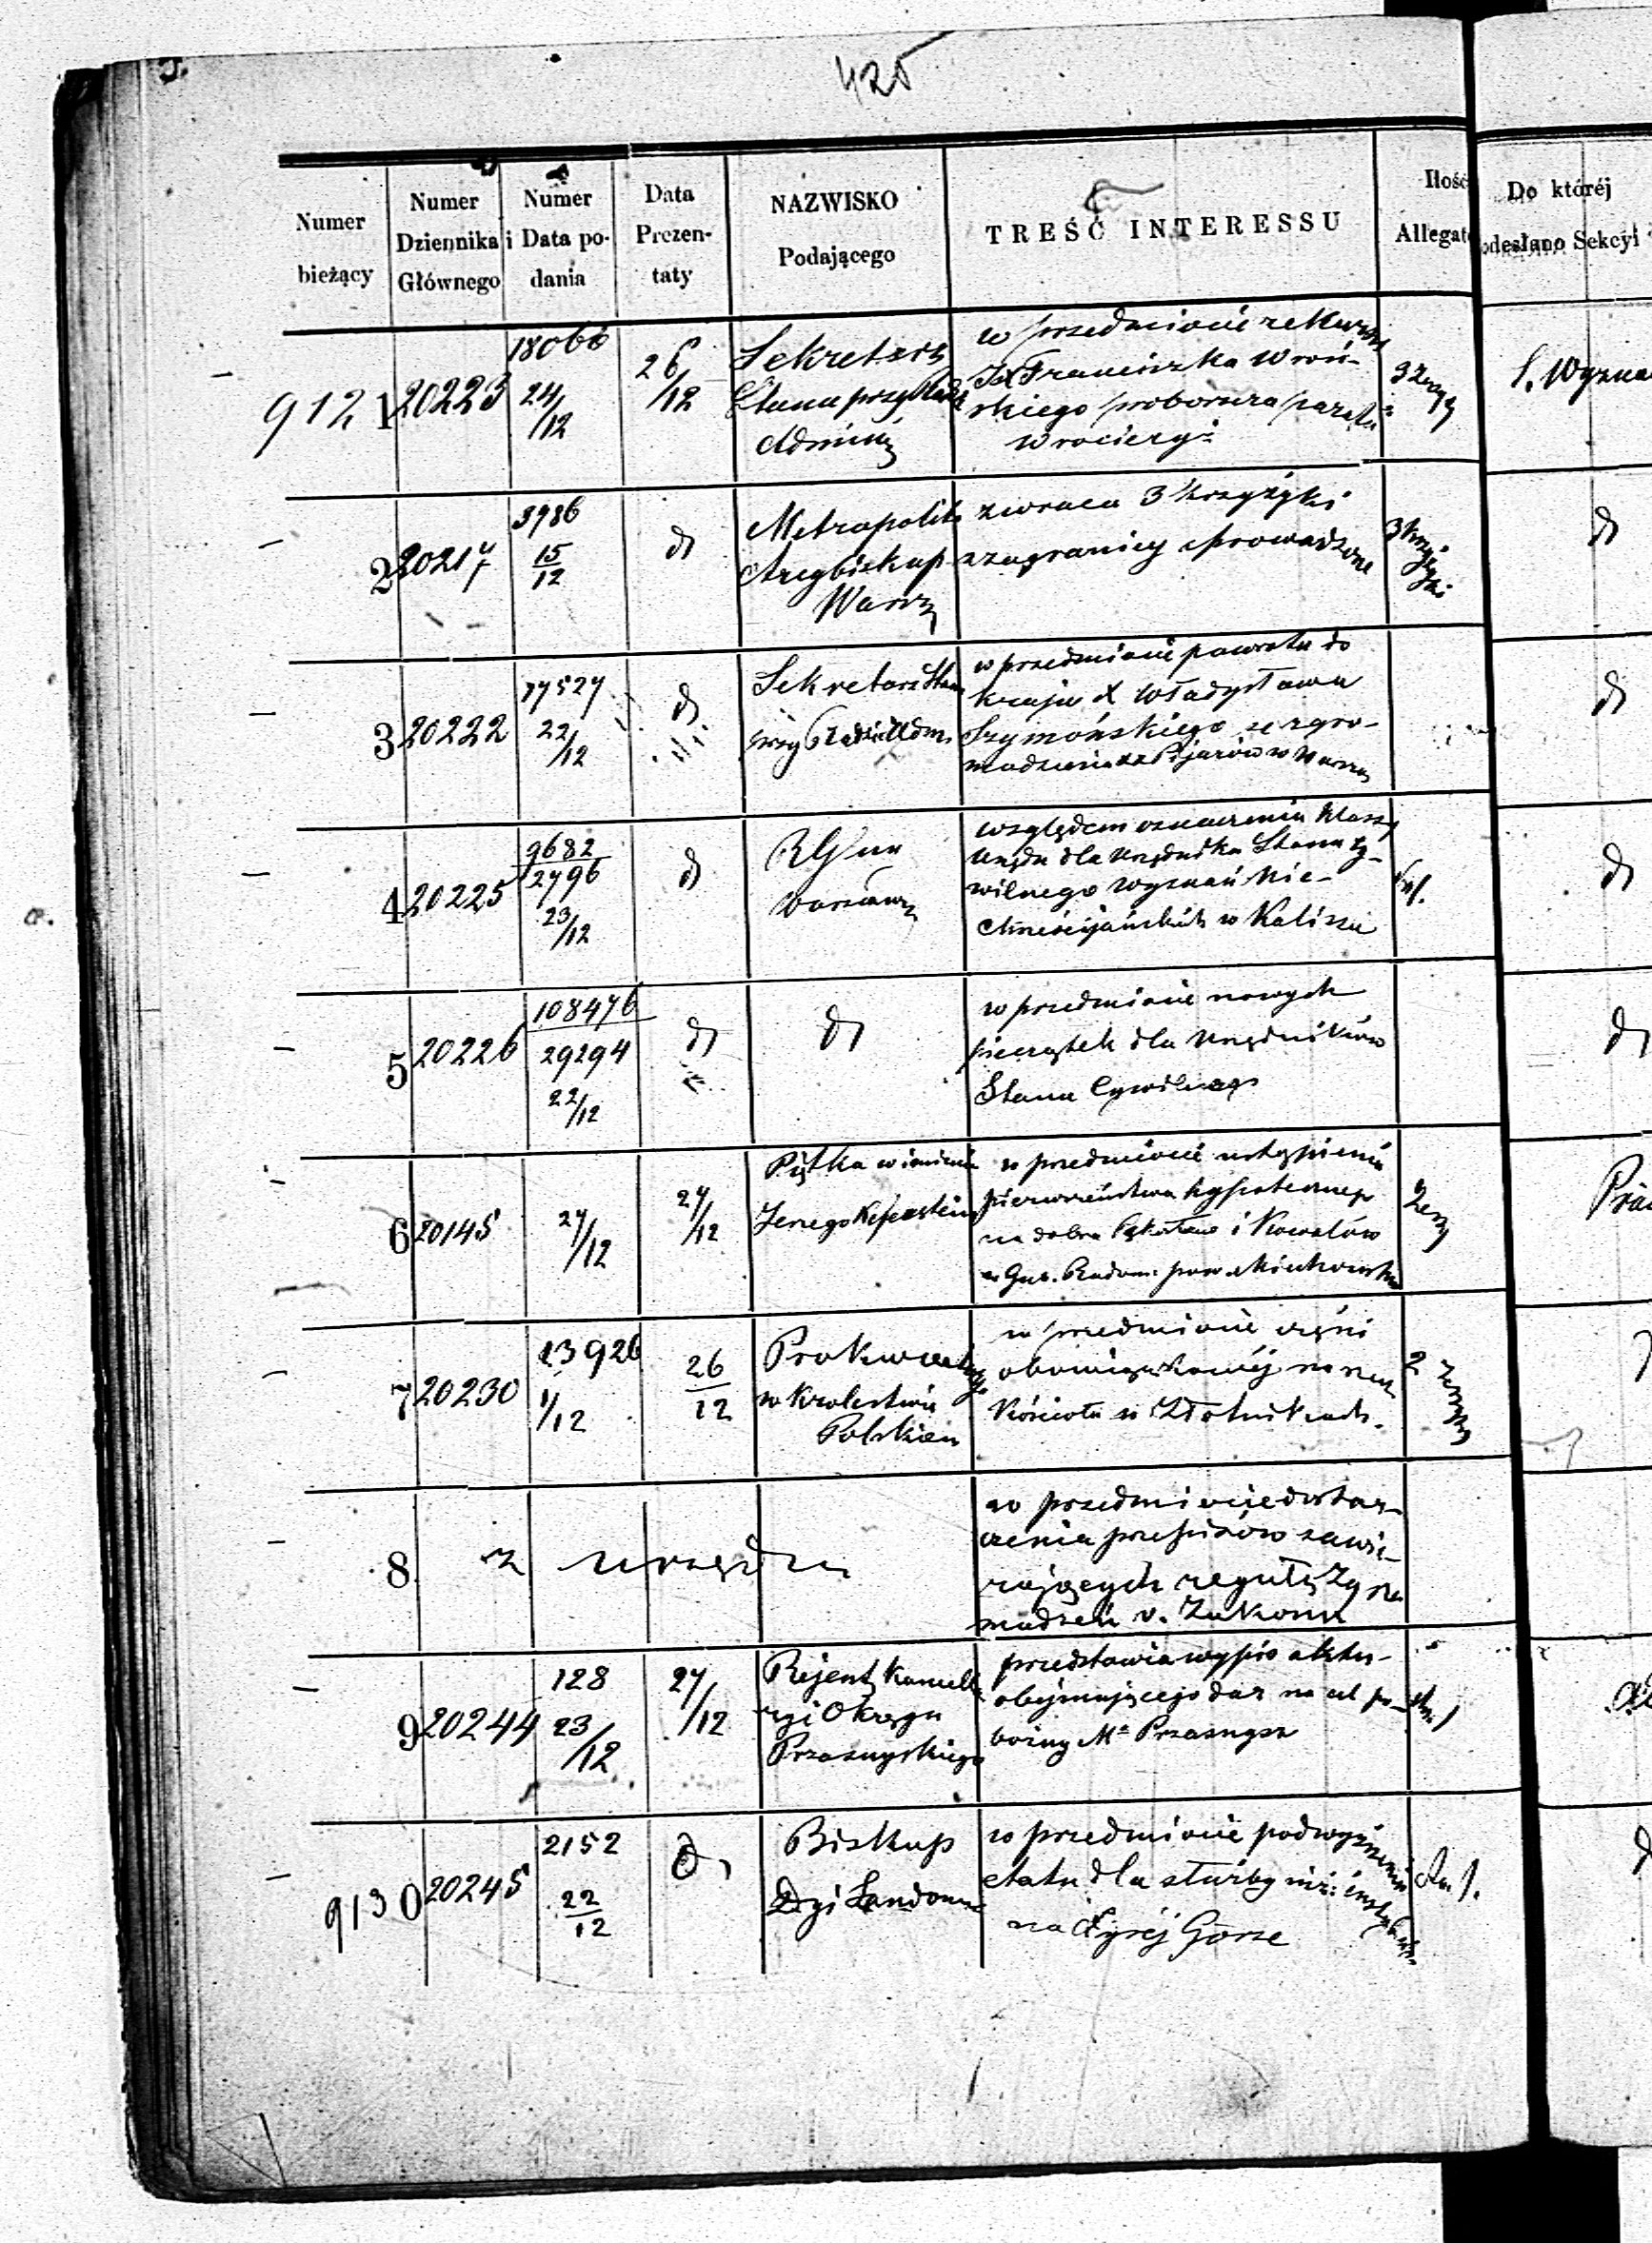 425
Numer
bieżący
Numer
Dziennika
Głównego
Numer
i Data po-
dania
Data
Prezen-
taty
NAZWISKO
Podającego
TREŚĆ INTERESSU
Ilość
Allegat
Do któréj
odesłano Sekcyi
9121
20223
18066
24/12
26/12
Sekretarz
Stanu przy
w przedmiocie rekursu
Franciszka Wroń-
skiego proboszcza
S. Wyzna
2
20217
3986
15/12
d
Metropolita
Arcybiskup
Warsz
zwraca 3 krzyżyki
z zagranicy sprowadzone
3 krzyżyki
d
3
20222
17527
22/12
d
Sekretarz Stanu
przy
w przedmiocie powrotu do
kraju X Władysława
Szymońskiego ze zgro-
madzenia XX Pijarów w Warsz
d
4
20225
9682
2796
23/12
d
RGun
Warszaws
względem oznaczenia klassy
urzędu dla urzędnika Stanu Cy-
wilnego wyznań Nie-
chrześcijańskich w Kaliszu
d
5
20226
108476
29294
22/12
d
d
w przedmiocie nowych
pieczątek dla urzędników
Stanu Cywilnego
d
6
20145
27/12
27/12
Piątka w imieniu
Jerzego
w przedmiocie ustąpienia
pierwszeństwa hypotecznego
na dobra i Kowalów
w Gub. Radom. pow. Miechowskim
7
20230
13926
1/12
26/12
Prokurator
w Królestwie
Polskiem
w przedmiocie części
obowiązkowéj na rzecz
Kościoła w Złotnikach
2
8
z urzędu
w przedmiocie dostar-
czenia przepisów zawie-
rających regułę Zgro
madzeń v. Zakonu
9
20244
128
23/12
27/12
Rejent Kancella
ryi Okręgu
Przasnyskiego
przedstawia wypis aktu
obejmującego dar na cel po-
bożny Mta Przasnysz
9130
20245
2152
22/12
d
Biskup
Dyi Sandom
w przedmiocie podwyższenia
etatu dla służby niż: instytu
na Łyséj Górze